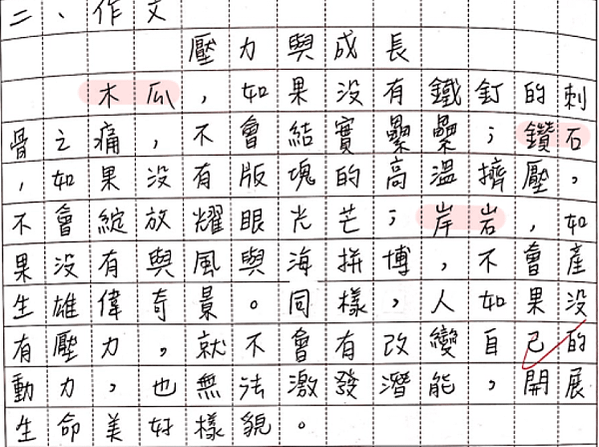 二、作文
壓力與成長
木瓜，如果沒有鐵釘的刺
骨之痛，不會結實纍纍；鑽石
，如果沒有版塊的高溫擠壓，
不會綻放耀眼光芒；岸岩，如
果沒有與風與海拼博，不會產
生雄偉奇景。同樣，人如果沒
有壓力，就不會有改變自己的
動力，也無法激發潛能，開展
生命美好樣貌。